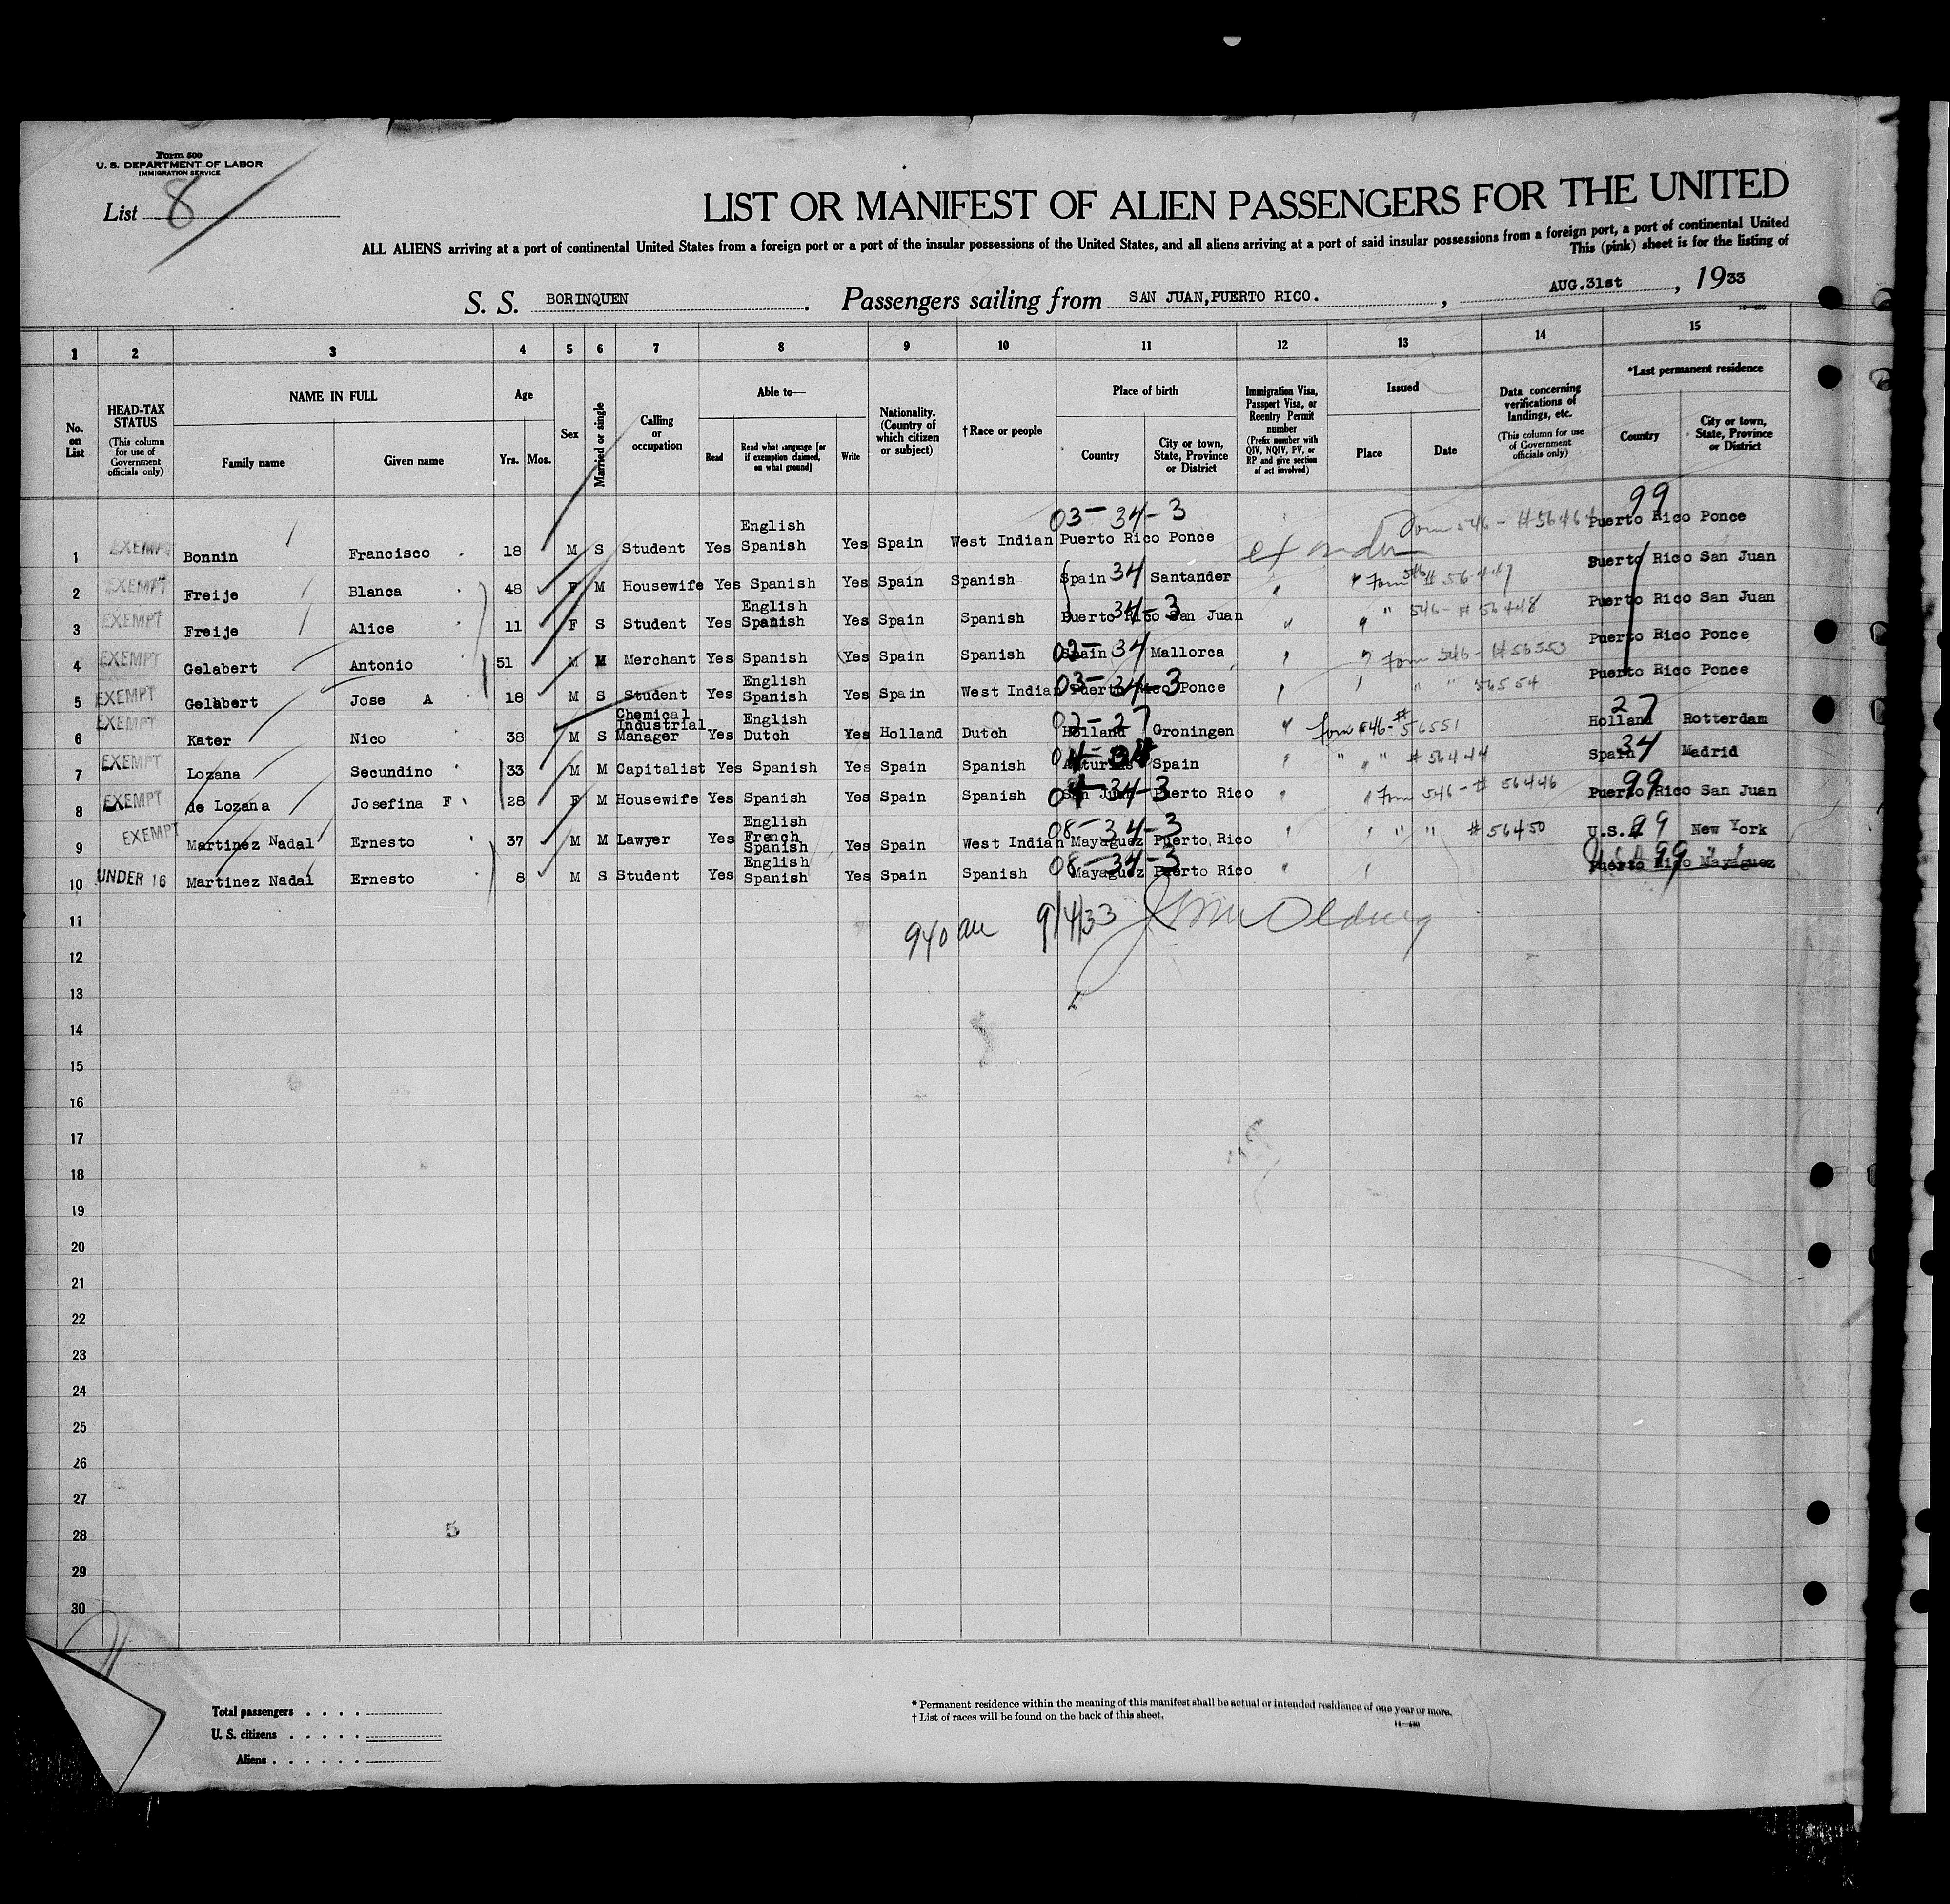 Form 500
U. S. DEPARTMENT OF LABOR
IMMIGRATION SERVICE
List 8
LIST OR MANIFEST OF ALIEN PASSENGERS FOR THE UNITED
ALL ALIENS arriving at a port of continental United States from a foreign port or a port of the insular possessions of the United States, and all aliens arriving at a port of said insular possessions from a foreign port, a port of continental United
This (pink) sheet is for the listing of
S. S. BORINQUEN. Passengers sailing from SAN JUAN, PUERTO RICO. , AUG.31st , 1933
1 2 3 4 5 6 7 8 9 10 11 12 13 14 15
No. on List
HEAD-TAX STATUS
(This column for use of Government officials only)
NAME IN FULL
Family name Given name
Age
Yrs. Mos.
Sex
Married or single
Calling or occupation
Able to—
Read
Read what language [or if exemption claimed, on what ground]
Write
Nationality. (Country of which citizen or subject)
†Race or people
Place of birth
Country
City or town, State, Province or District
Immigration Visa, Passport Visa, or Reentry Permit number
(Prefix number with QIV, NQIV, PV, or RP and give section of act involved)
Issued
Place Date
Data concerning verifications of landings, etc.
(This column for use of Government officials only)
*Last permanent residence
Country
City or town, State, Province or District
03-34-3 99
1 EXEMPT Bonnin Francisco 18 M S Student Yes English Spanish Yes Spain West Indian Puerto Rico Ponce Puerto Rico Ponce
2 EXEMPT Freije Blanca 48 F M Housewife Yes Spanish Yes Spain Spanish Spain 34 Santander " " Form 546 # 56447 Puerto Rico San Juan
3 EXEMPT Freije Alice 11 F S Student Yes English Spanish Yes Spain Spanish Puerto Rico San Juan 34-3 " " 546-# 56448 Puerto Rico San Juan
4 EXEMPT Gelabert Antonio 51 M M Merchant Yes Spanish Yes Spain Spanish 02-34 Spain Mallorca " " Form 546-#56553 Puerto Rico Ponce
5 EXEMPT Gelabert Jose A 18 M S Student Yes English Spanish Yes Spain West Indian 03-34-3 Puerto Rico Ponce " " " " 56554 Puerto Rico Ponce
6 EXEMPT Kater Nico 38 M S Chemical Industrial Manager Yes English Dutch Yes Holland Dutch 02-27 Holland Groningen " Form 546-#56551 27 Holland Rotterdam
7 EXEMPT Lozana Secundino 33 M M Capitalist Yes Spanish Yes Spain Spanish Asturias Spain " " " " #56444 34 Spain Madrid
8 EXEMPT de Lozana Josefina F 28 F M Housewife Yes Spanish Yes Spain Spanish San Juan Puerto Rico 34-3 " " Form 546-# 56446 99 Puerto Rico San Juan
9 EXEMPT Martinez Nadal Ernesto 37 M M Lawyer Yes English French Spanish Yes Spain West Indian 08-34-3 Mayaguez Puerto Rico " " " " #56450 U.S.A 99 New York
10 UNDER 16 Martinez Nadal Ernesto 8 M S Student Yes English Spanish Yes Spain Spanish 08-34-3 Mayaguez Puerto Rico " " 99 Puerto Rico Mayaguez
11 940 am 9/4/33
12
13
14
15
16
17
18
19
20
21
22
23
24
25
26
27
28 5
29
30
Total passengers . . . .
U. S. citizens . . . . .
Aliens . . . . . .
* Permanent residence within the meaning of this manifest shall be actual or intended residence of one year or more.
† List of races will be found on the back of this sheet.
14—430